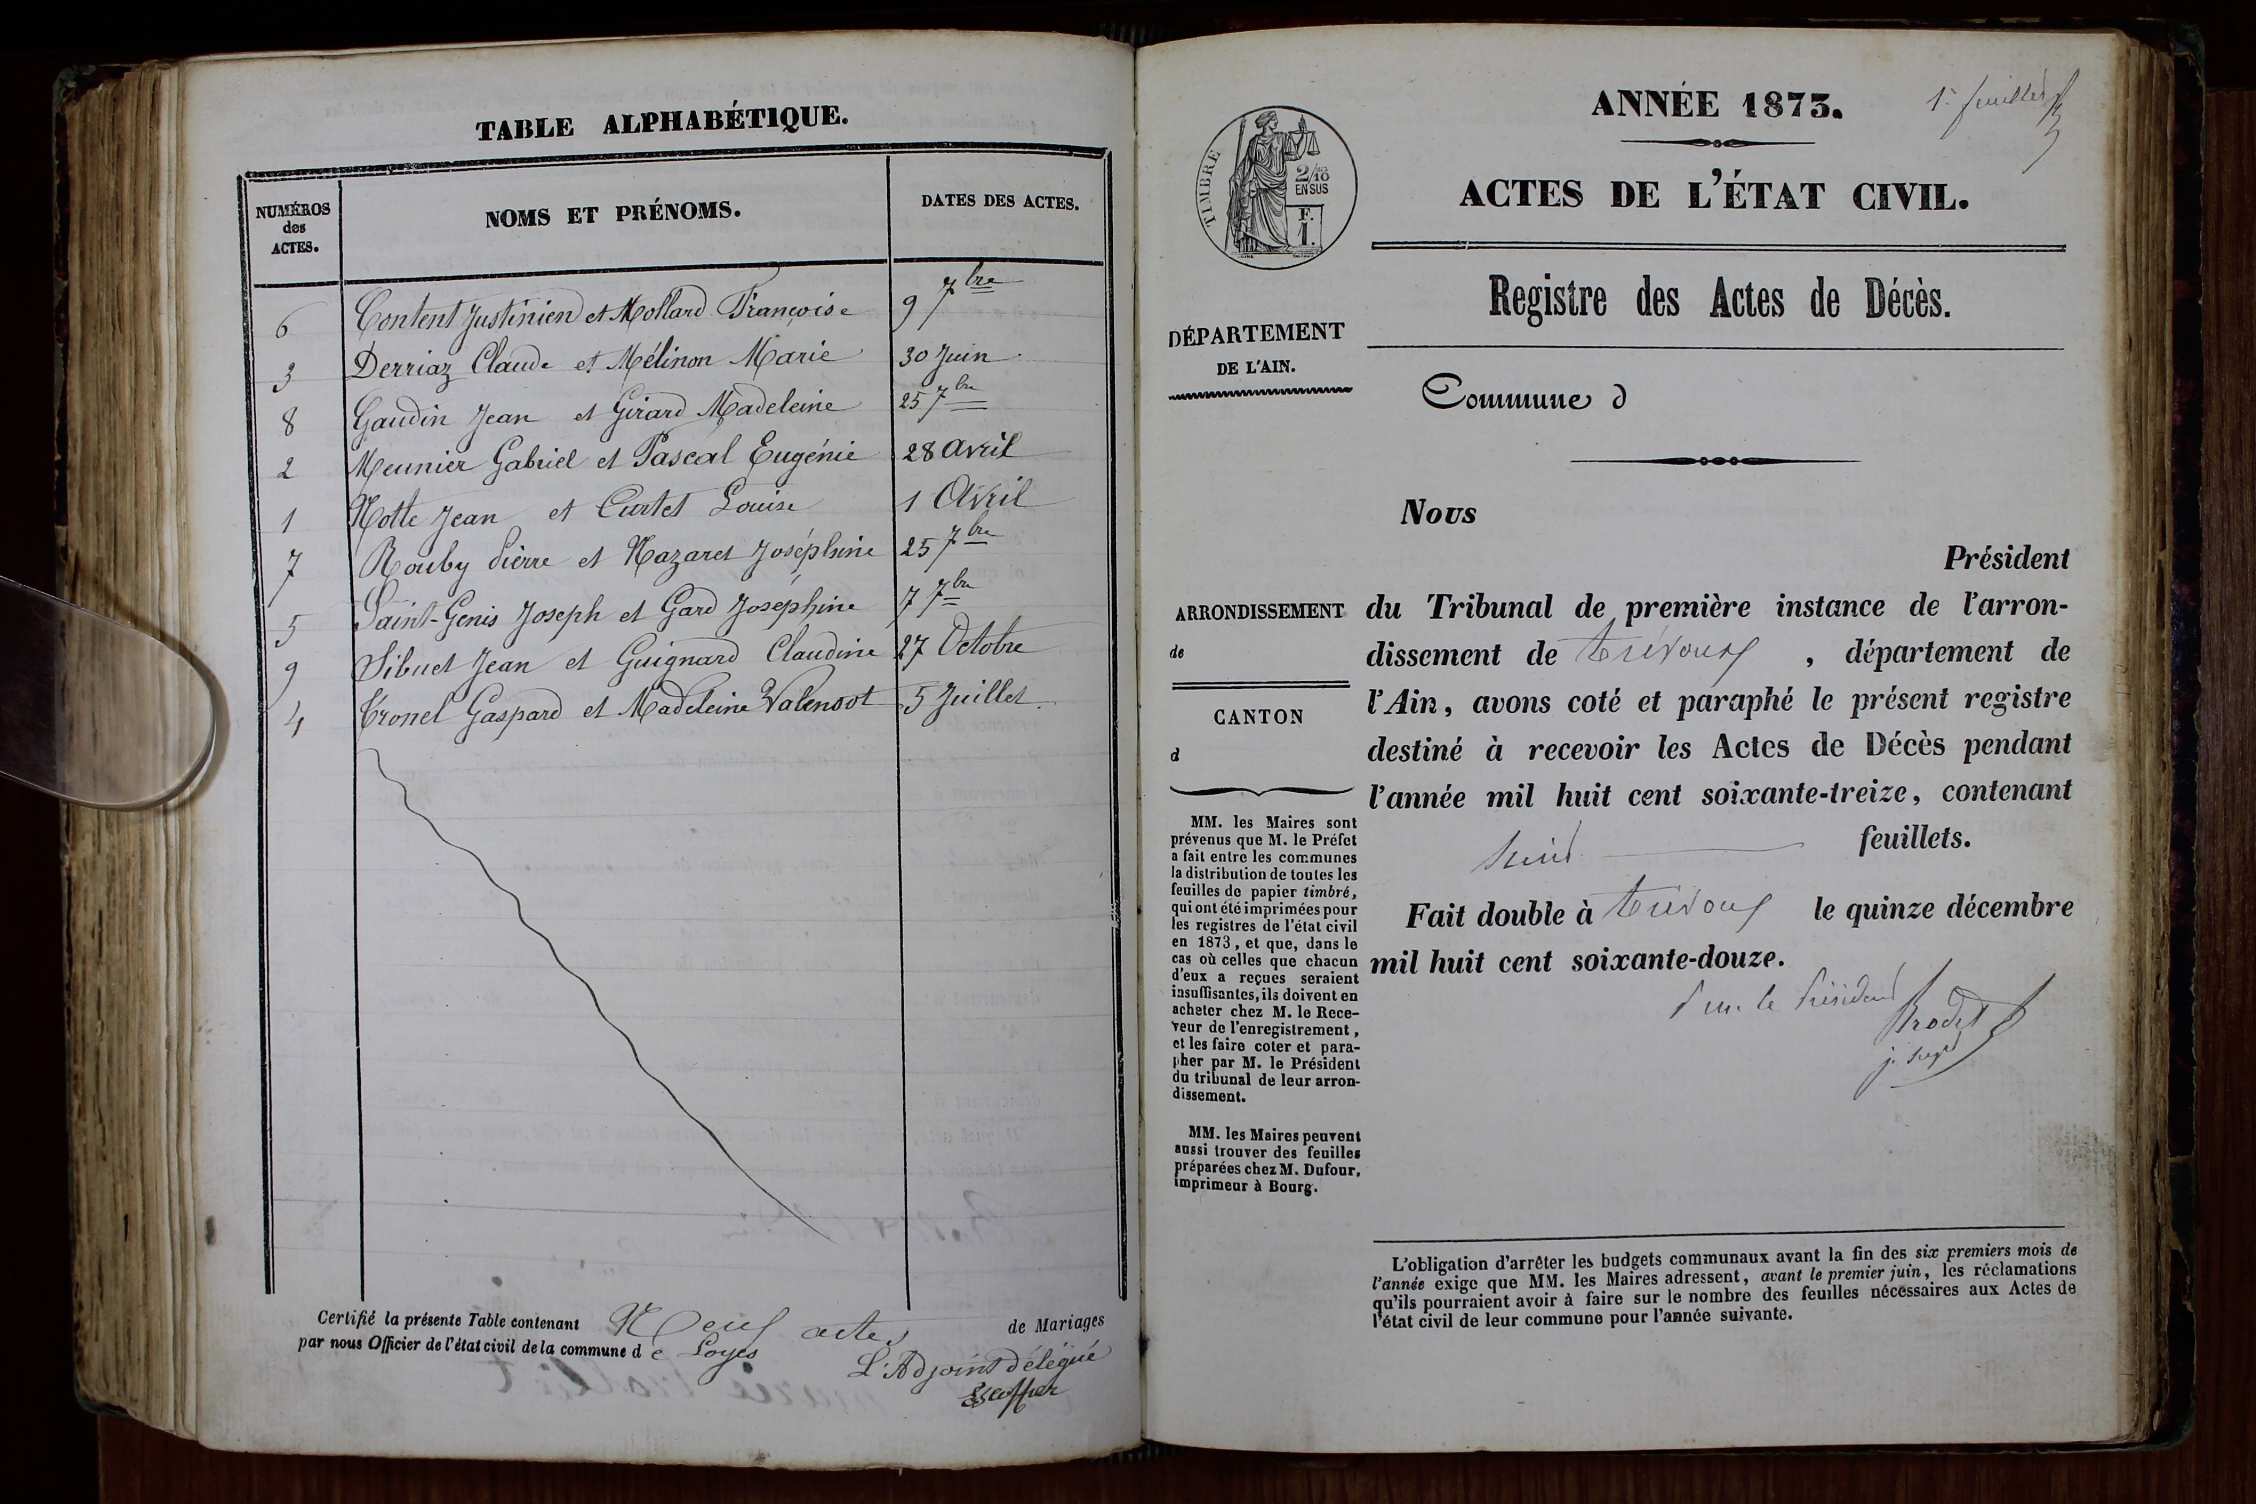 TABLE ALPHABÉTIQUE.
NUMÉROS
des
ACTES.
NOMS ET PRÉNOMS.
DATES DES ACTES.
6 Content Justinien et Mollard Françoise 9 7bre
3 Derriaz Claude et Mélinon Marie 30 Juin
8 Gaudin Jean et Girard Madeleine 25 7bre
2 Meunier Gabriel et Pascal Eugénie 28 avril
1 Notte Jean et Curtet Louise 1 Avril
7 Rouby Pierre et Nazaret Joséphine 25 7bre
5 Saint-Genis Joseph et Gard Joséphine 7 7bre
9 Sibuet Jean et Guignard Claudine 27 Octobre
4 Tronel Gaspard et Madeleine 5 Juillet
Certifié la présente Table contenant Neuf actes de Mariages
par nous Officier de l'état civil de la commune de Loyes
L'Adjoint délégué
Escoffier
1er feuillet
ANNÉE 1873.
ACTES DE L'ÉTAT CIVIL.
TIMBRE
2/10
EN SUS
F.
1.
Registre des Actes de Décès.
DÉPARTEMENT
DE L'AIN.
Commune d
Nous
Président
du Tribunal de première instance de l'arron-
dissement de trévoux, département de
l'Ain, avons coté et paraphé le présent registre
destiné à recevoir les Actes de Décès pendant
l'année mil huit cent soixante-treize, contenant
feuillets.
Fait double à trévoux le quinze décembre
mil huit cent soixante-douze.
Pour le Président
Brodet
ARRONDISSEMENT
de
CANTON
d
MM. les Maires sont
prévenus que M. le Préfet
a fait entre les communes
la distribution de toutes les
feuilles de papier timbré,
qui ont été imprimées pour
les registres de l'état civil
en 1873, et que, dans le
cas où celles que chacun
d'eux a reçues seraient
insuffisantes, ils doivent en
acheter chez M. le Rece-
veur de l'enregistrement,
et les faire coter et para-
pher par M. le Président
du tribunal de leur arron-
dissement.
MM. les Maires peuvent
aussi trouver des feuilles
préparées chez M. Dufour,
imprimeur à Bourg.
L'obligation d'arrêter les budgets communaux avant la fin des six premiers mois de
l'année exige que MM. les Maires adressent, avant le premier juin, les réclamations
qu'ils pourraient avoir à faire sur le nombre des feuilles nécessaires aux Actes de
l'état civil de leur commune pour l'année suivante.